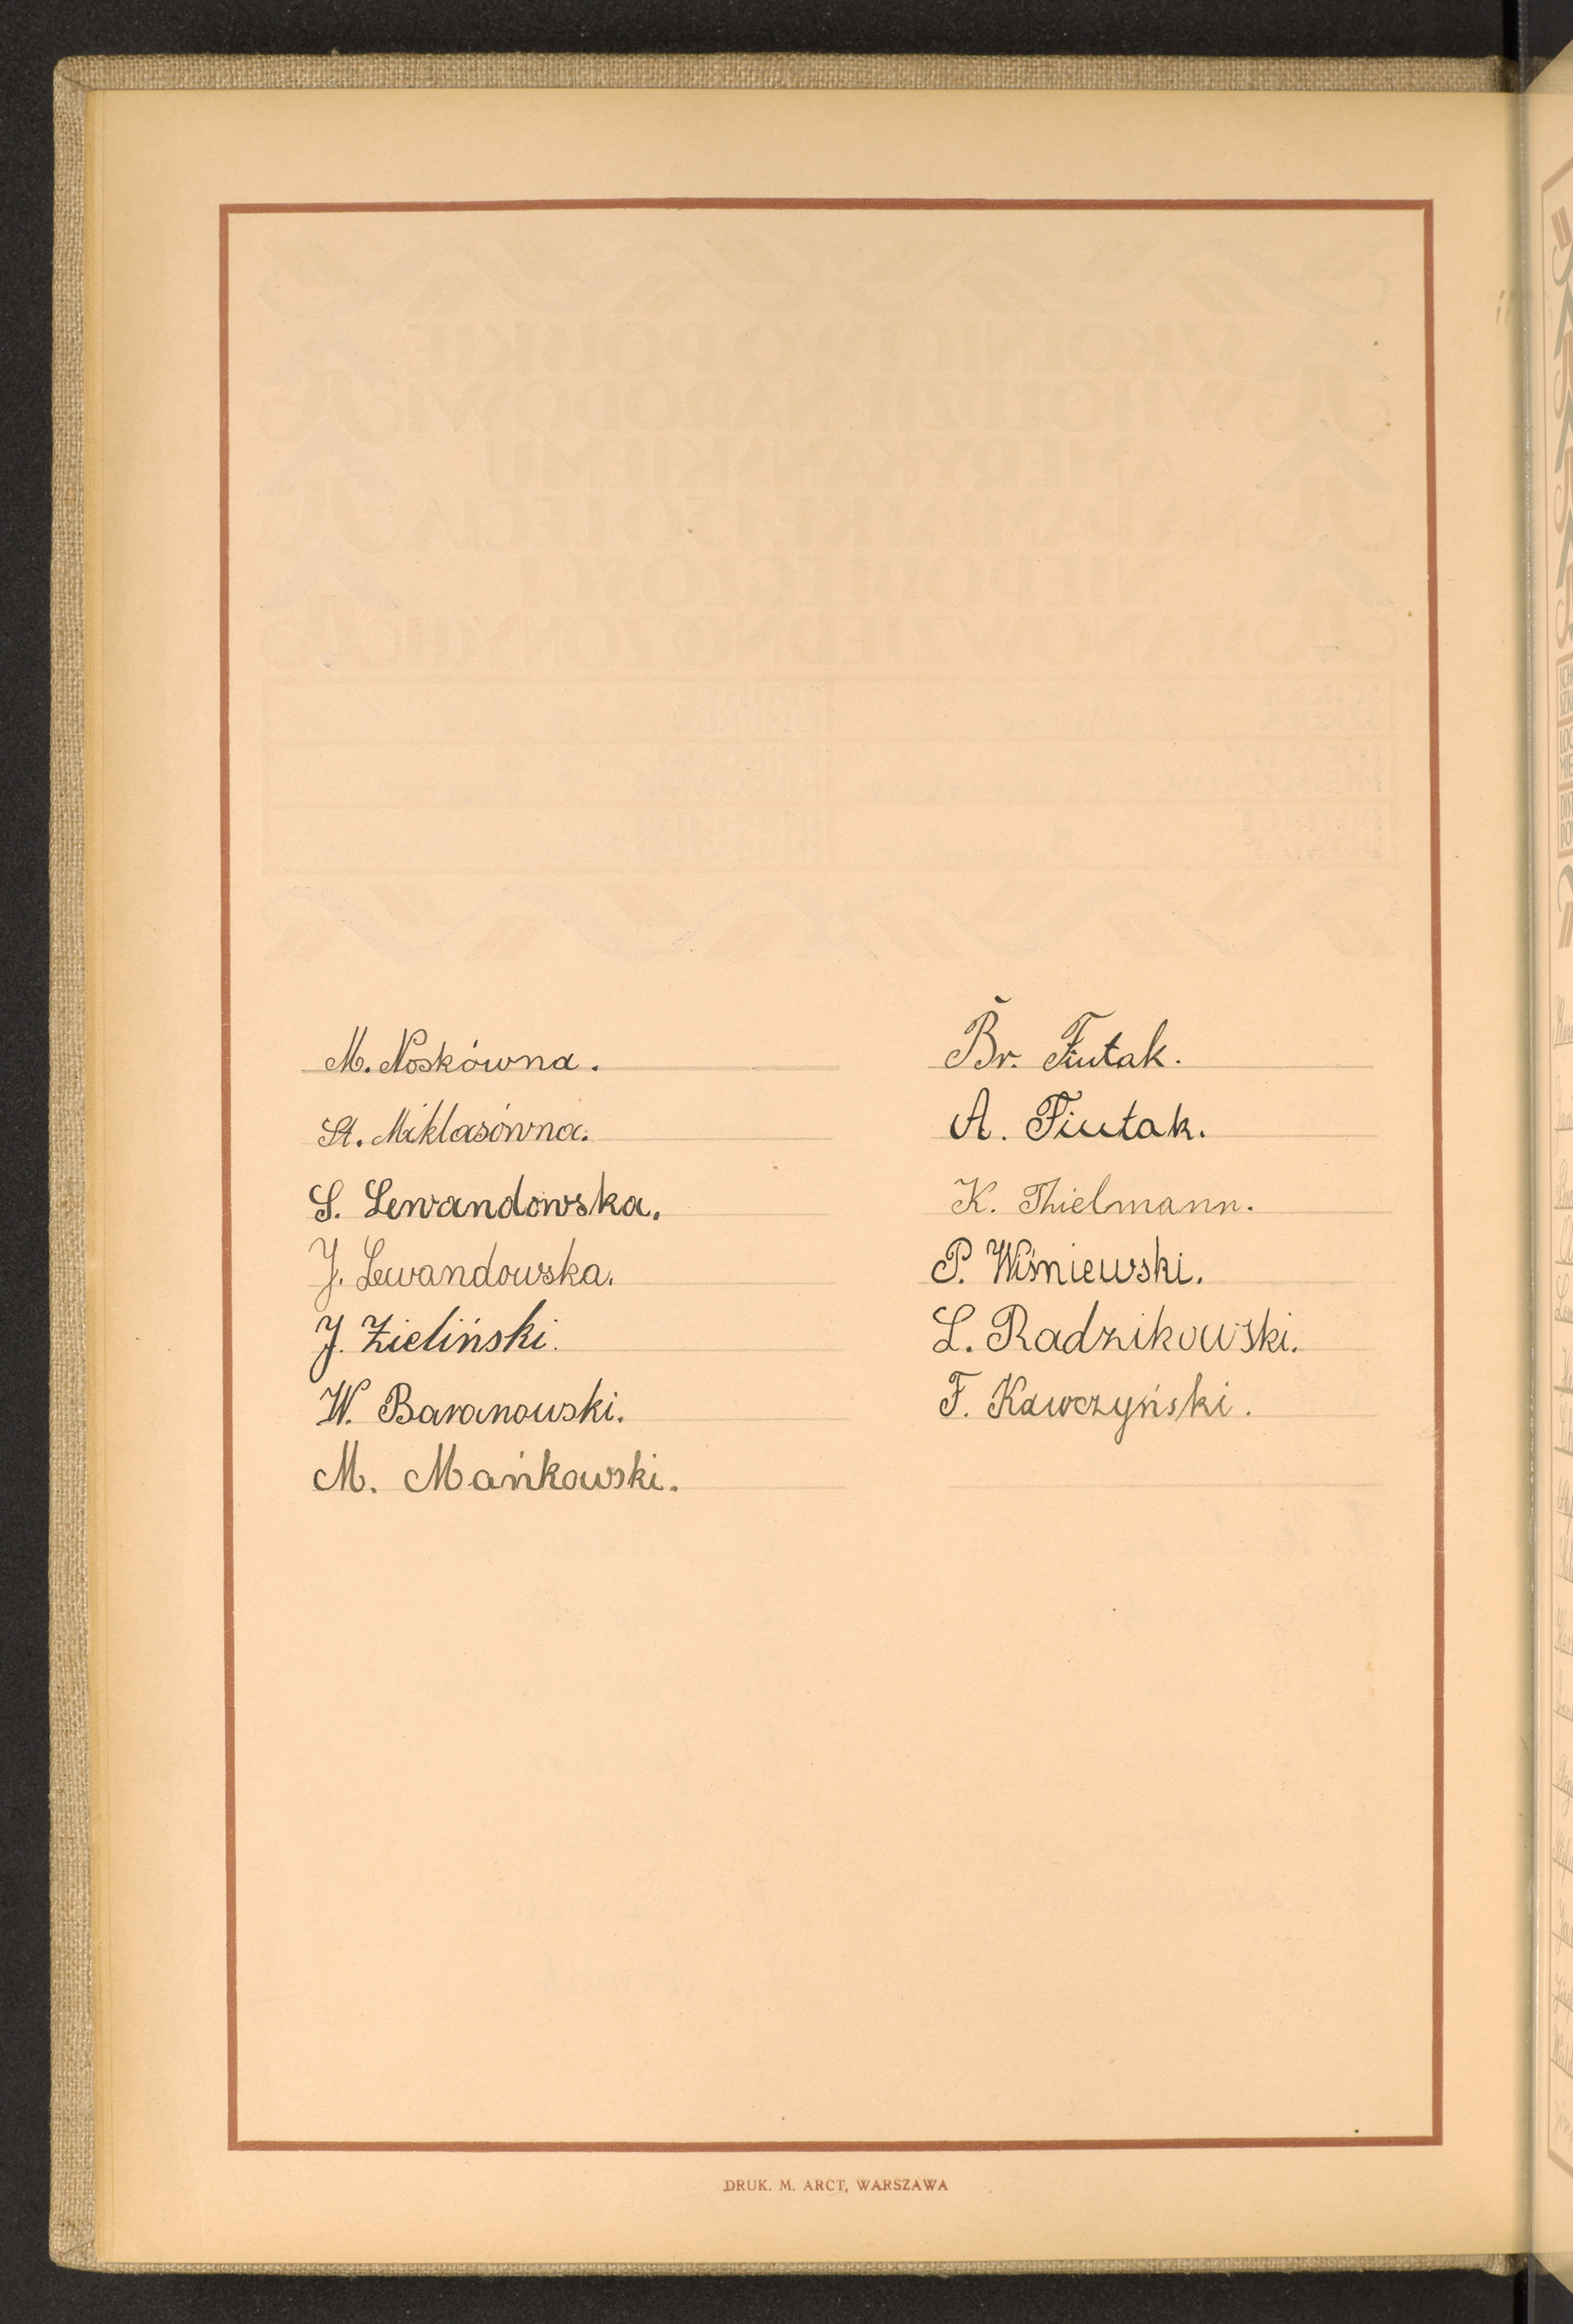 M. Noskówna.
St. Miklasówna.
S. Lewandowska.
J. Lewandowska.
J. Zieliński.
W. Baranowski.
M. Mańkowski.
Br. Fiutak.
A. Fiutak.
K. Thielmann.
P. Wiśniewski.
L. Radzikowski.
F. Kawczyński.
DRUK. M. ARCT, WARSZAWA